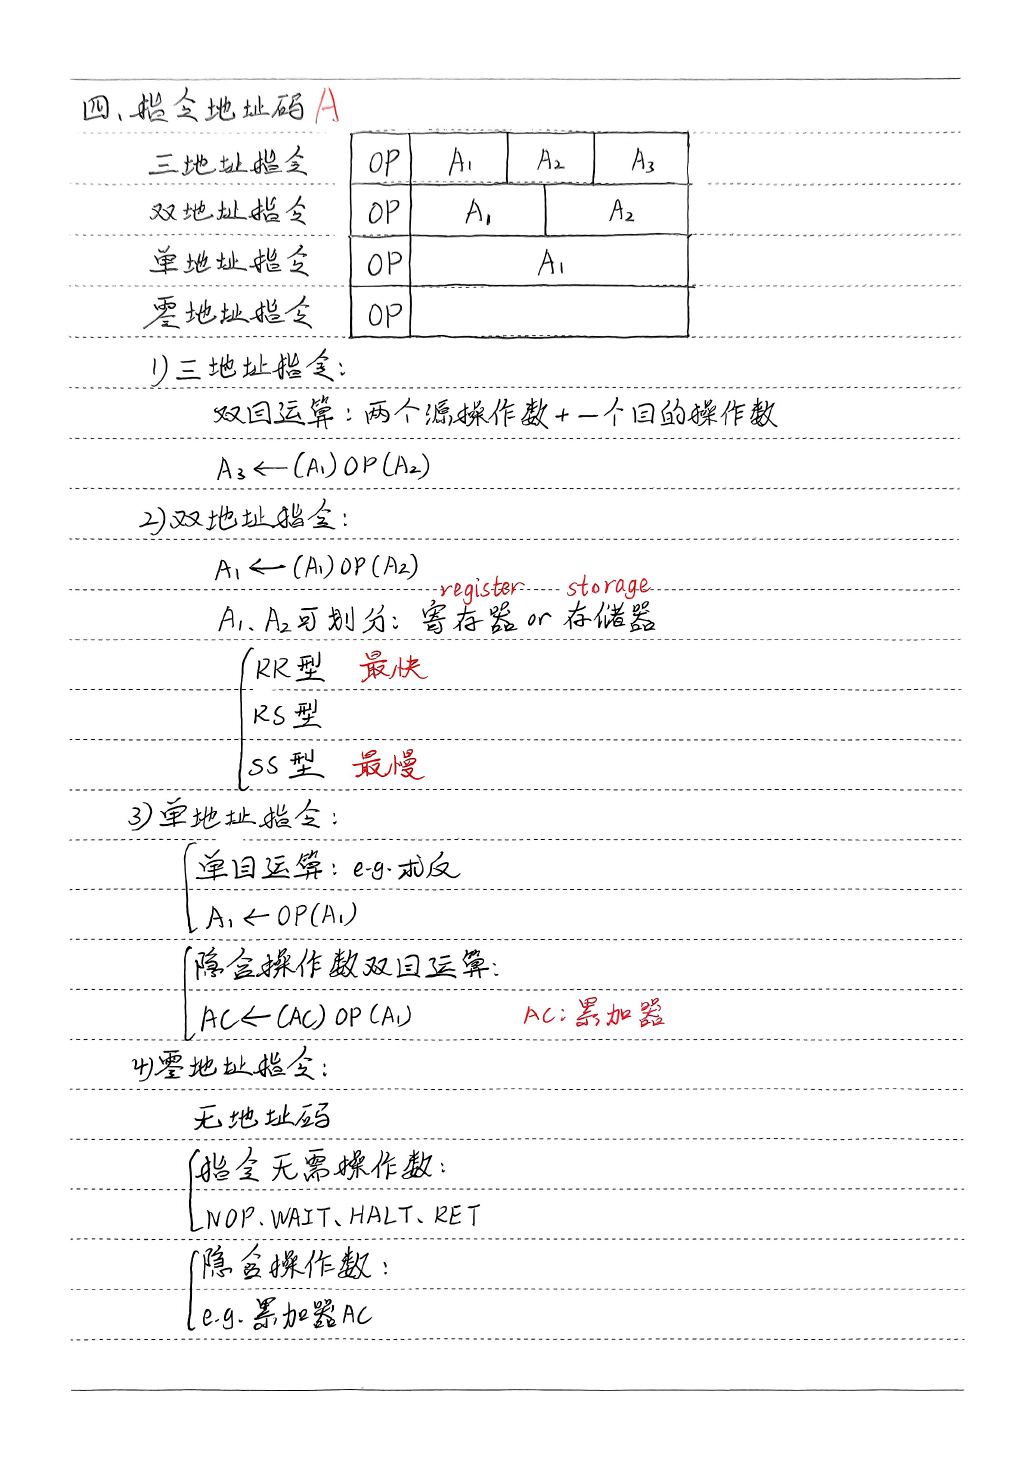 四、指令地址码 A
三地址指令 OP A₁ A₂ A₃
双地址指令 OP A₁ A₂
单地址指令 OP A₁
零地址指令 OP
1)三地址指令:
双目运算:两个源操作数+一个目的操作数
A₃←(A₁)OP(A₂)
2)双地址指令:
A₁←(A₁)OP(A₂)
register storage
A₁、A₂可划分:寄存器or存储器
RR型 最快
RS型
SS型 最慢
3)单地址指令:
单目运算:e.g.求反
A₁←OP(A₁)
隐含操作数双目运算:
AC←(AC)OP(A₁) AC:累加器
4)零地址指令:
无地址码
指令无需操作数:
NOP、WAIT、HALT、RET
隐含操作数:
e.g.累加器AC